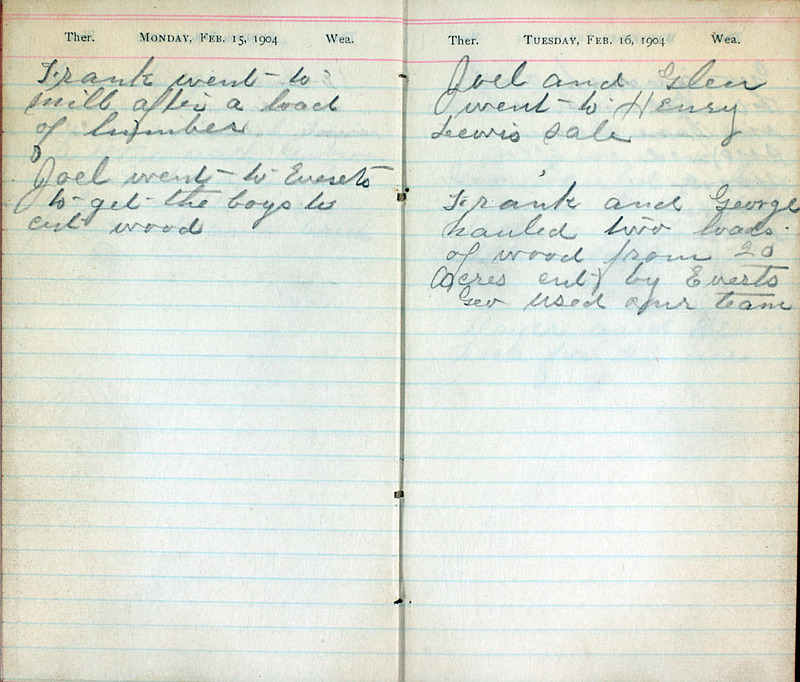 Ther. MONDAY, FEB. 15, 1904 Wea.
Frank went to
mill after a load
of lumber
Joel went to Everets
to get the boys to
cut wood
Ther. TUESDAY, FEB. 16, 1904 Wea.
Joel and Glen
went to Henry
Lewis sale
Frank and George
hauled two loads
of wood from 20
Acres cut by Everts
Geo used our team